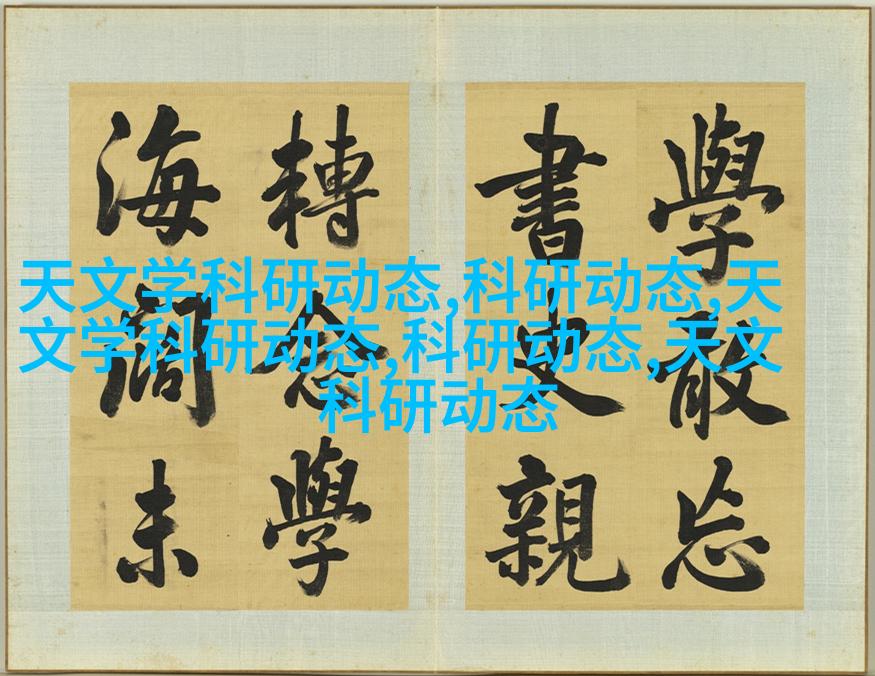 天文学科研动态,科研动态,天
文学科研动态,科研动态,天文
科研动态
學敢忘
書史親
轉念學
海闊未